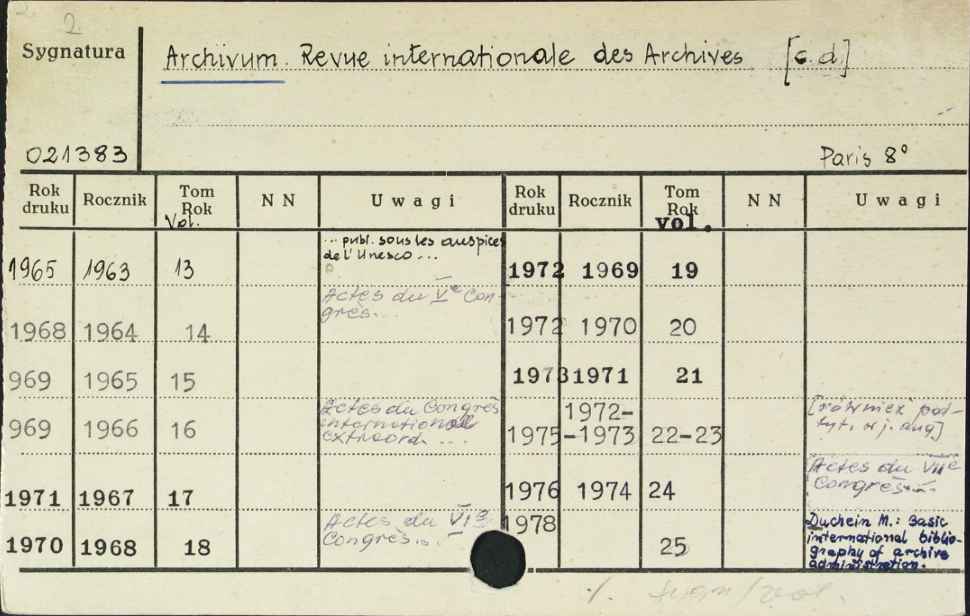 2.
Sygnatura
Archivum. Revue internationale des Archives [c.d]
021383
Paris 8°
Rok druku Rocznik Tom Rok Vol. NN Uwagi Rok druku Rocznik Tom Rok vol. NN Uwagi
... publ. sous les auspices
de l'Unesco ...
1965 1963 13
Actes du Ve Con-
grès...
1968 1964 14
969 1965 15
Actes du Congrès
internationale
extraord. ...
969 1966 16
1971 1967 17
Actes du VIe
Congrès...
1970 1968 18
1972 1969 19
1972 1970 20
1973 1971 21
1972-
1975 -1973 22-23
[również pod-
tyt. w j. ang]
1976 1974 24
Actes du VIIe
Congrès...
1978
25
Duchein M.: Basic
international biblio-
graphy of archive
administration.